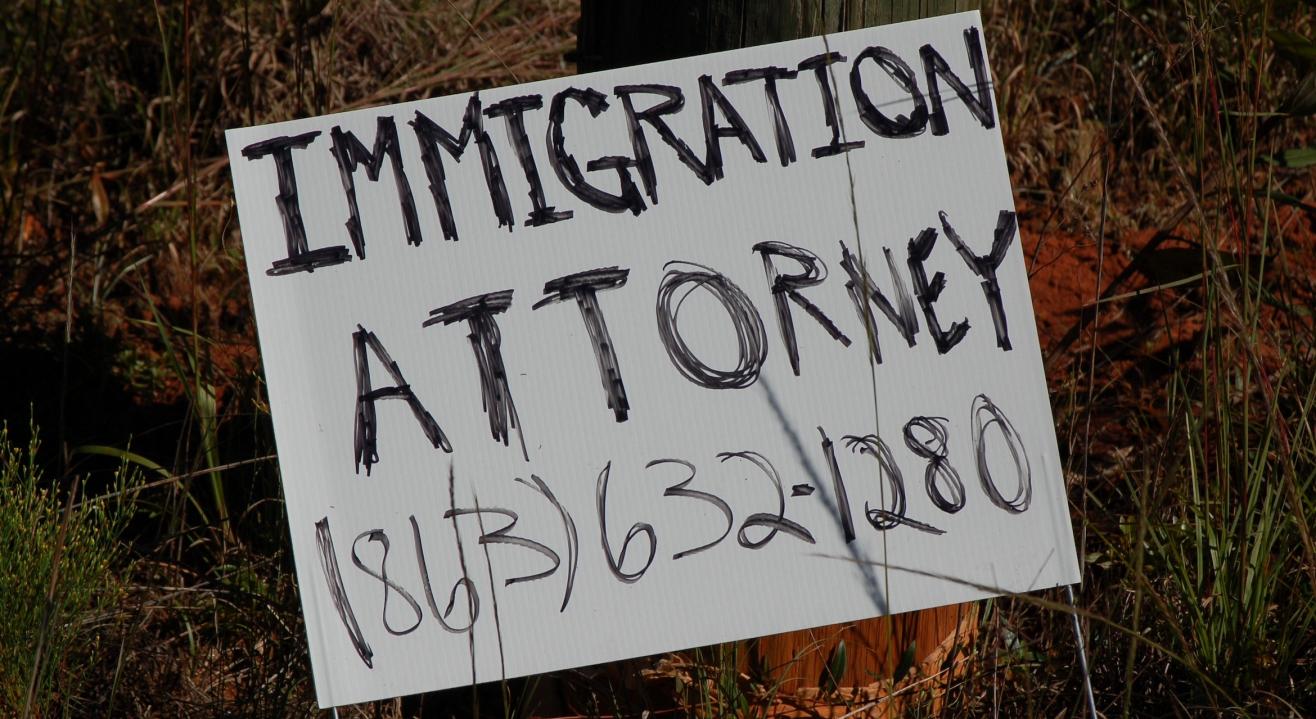 IMMIGRATION
ATTORNEY
(863) 632-1280